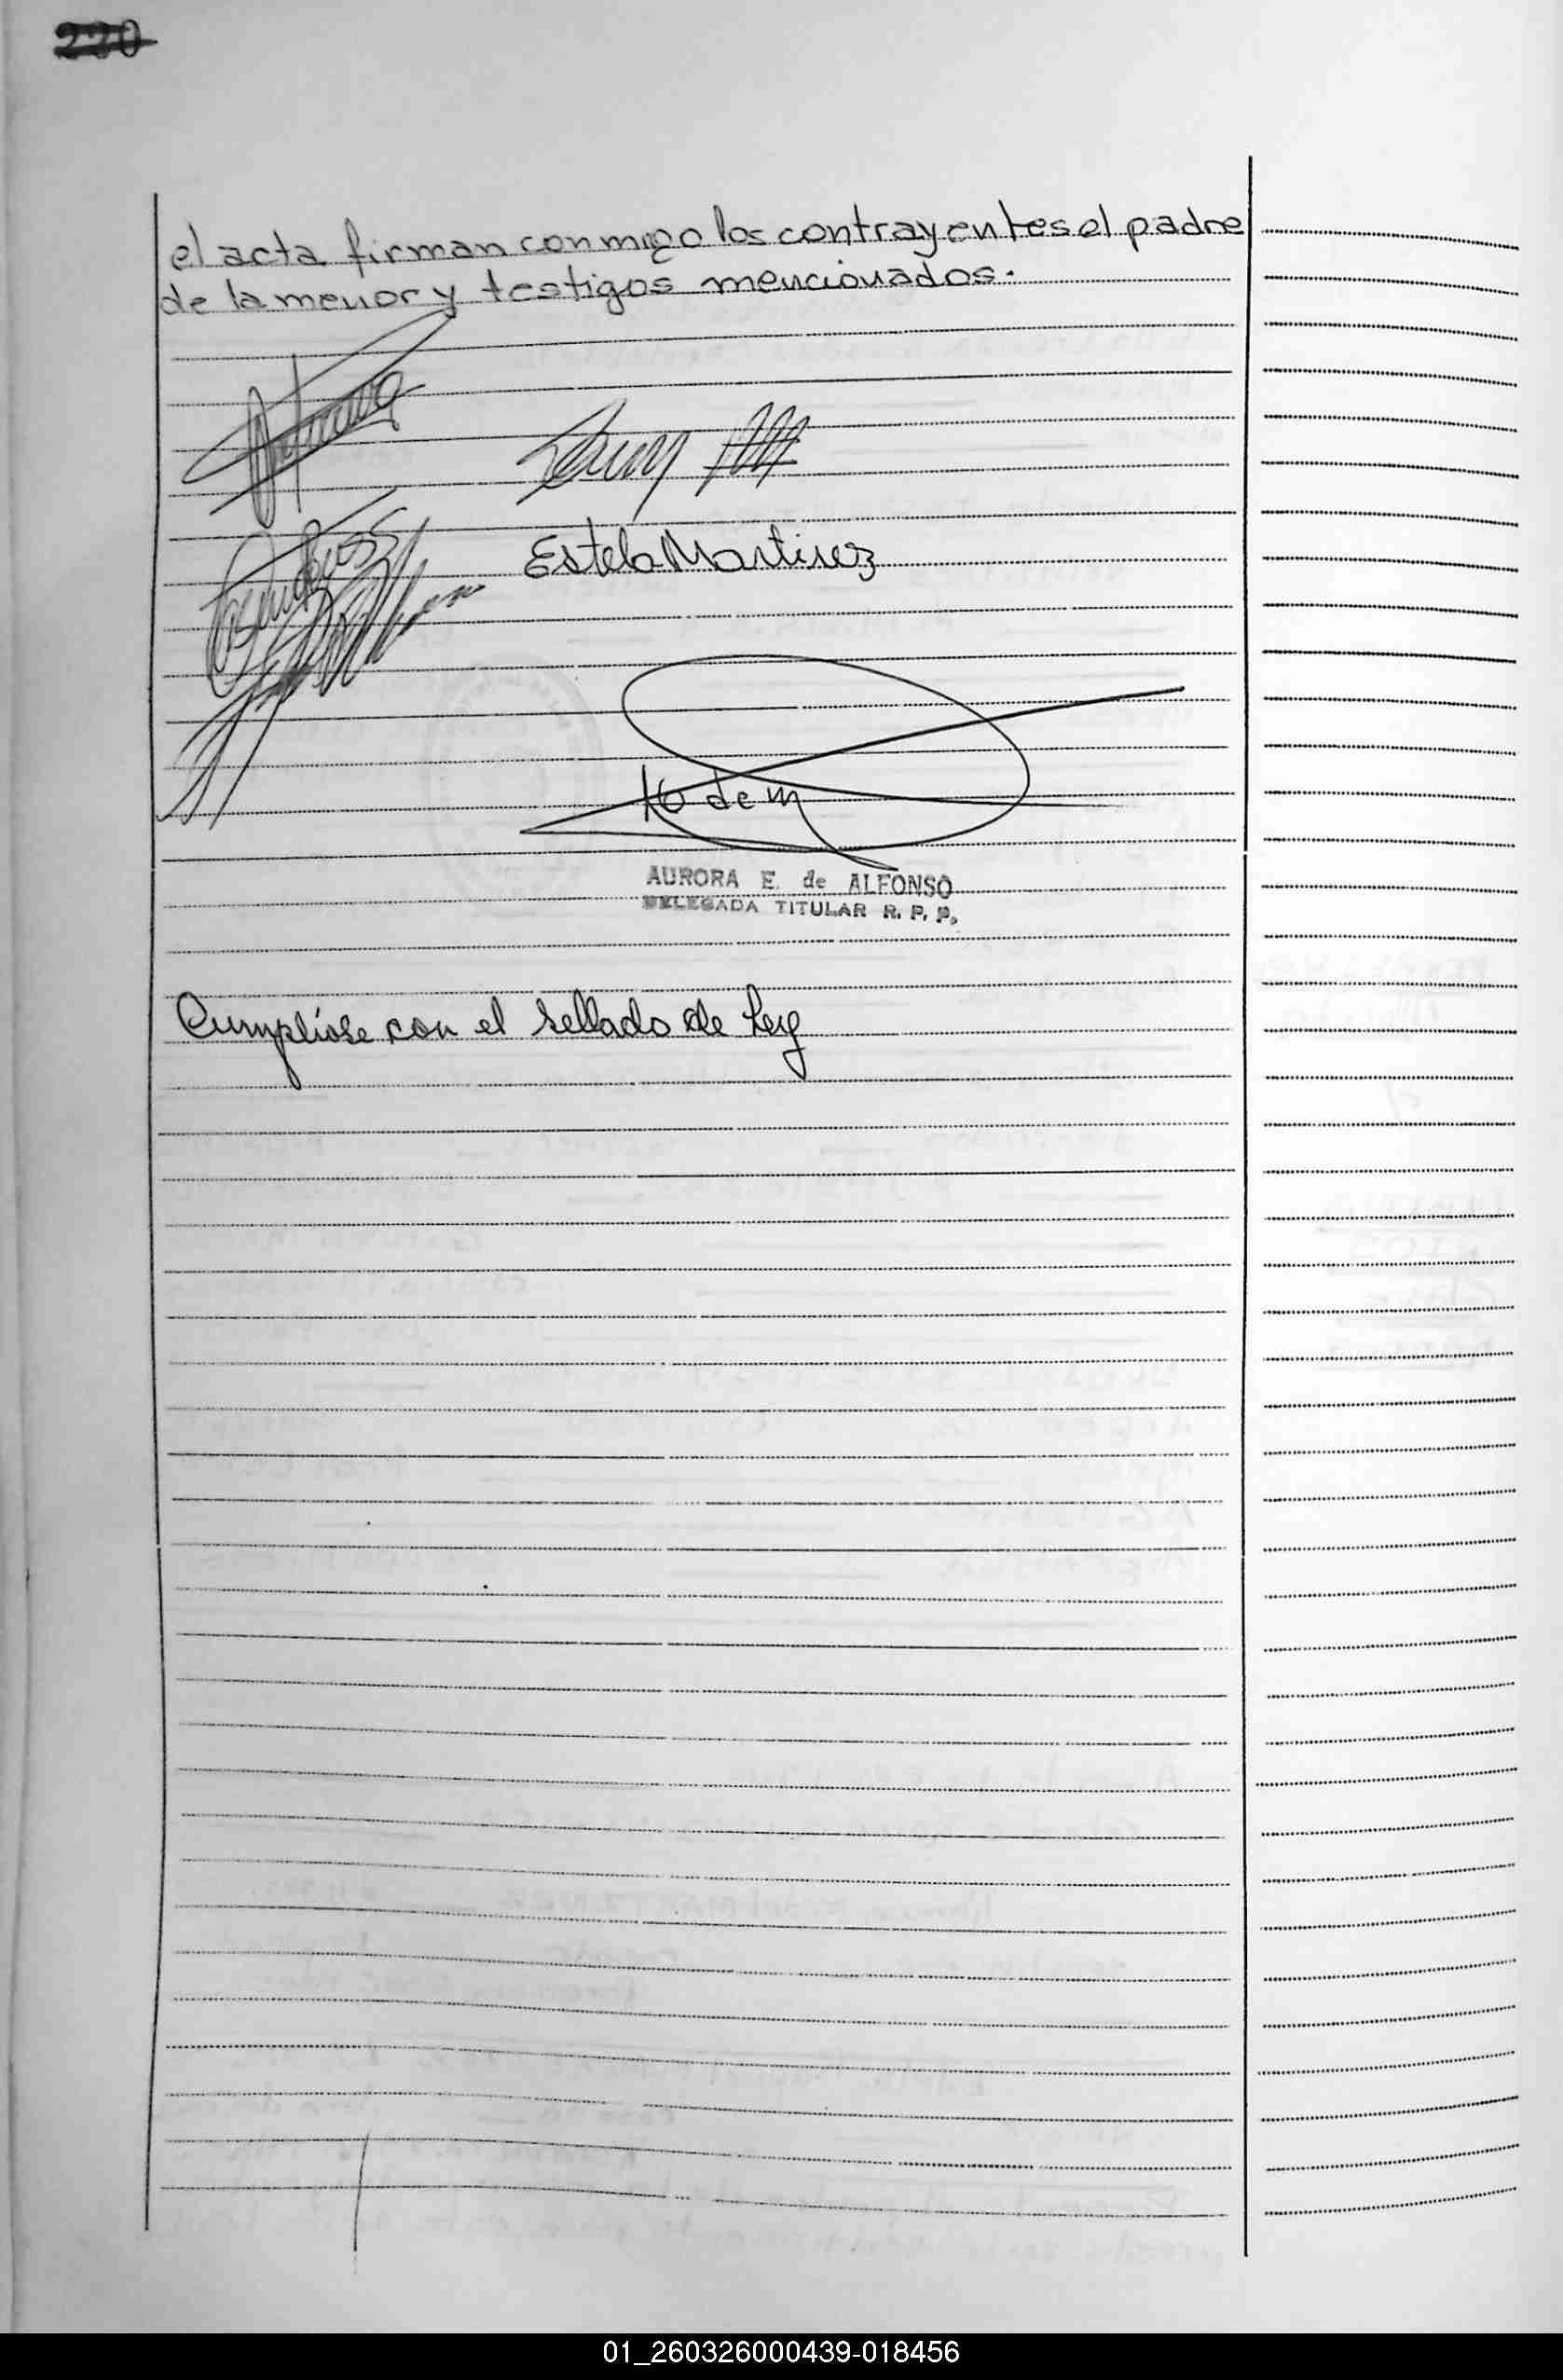 220
el acta firman conmigo los contrayentes el padre
de la menor y testigos mencionados.
Estela Martinez
AURORA E. de ALFONSO
DELEGADA TITULAR R. P. P.
Cumplióse con el sellado de Ley
01_260326000439-018456